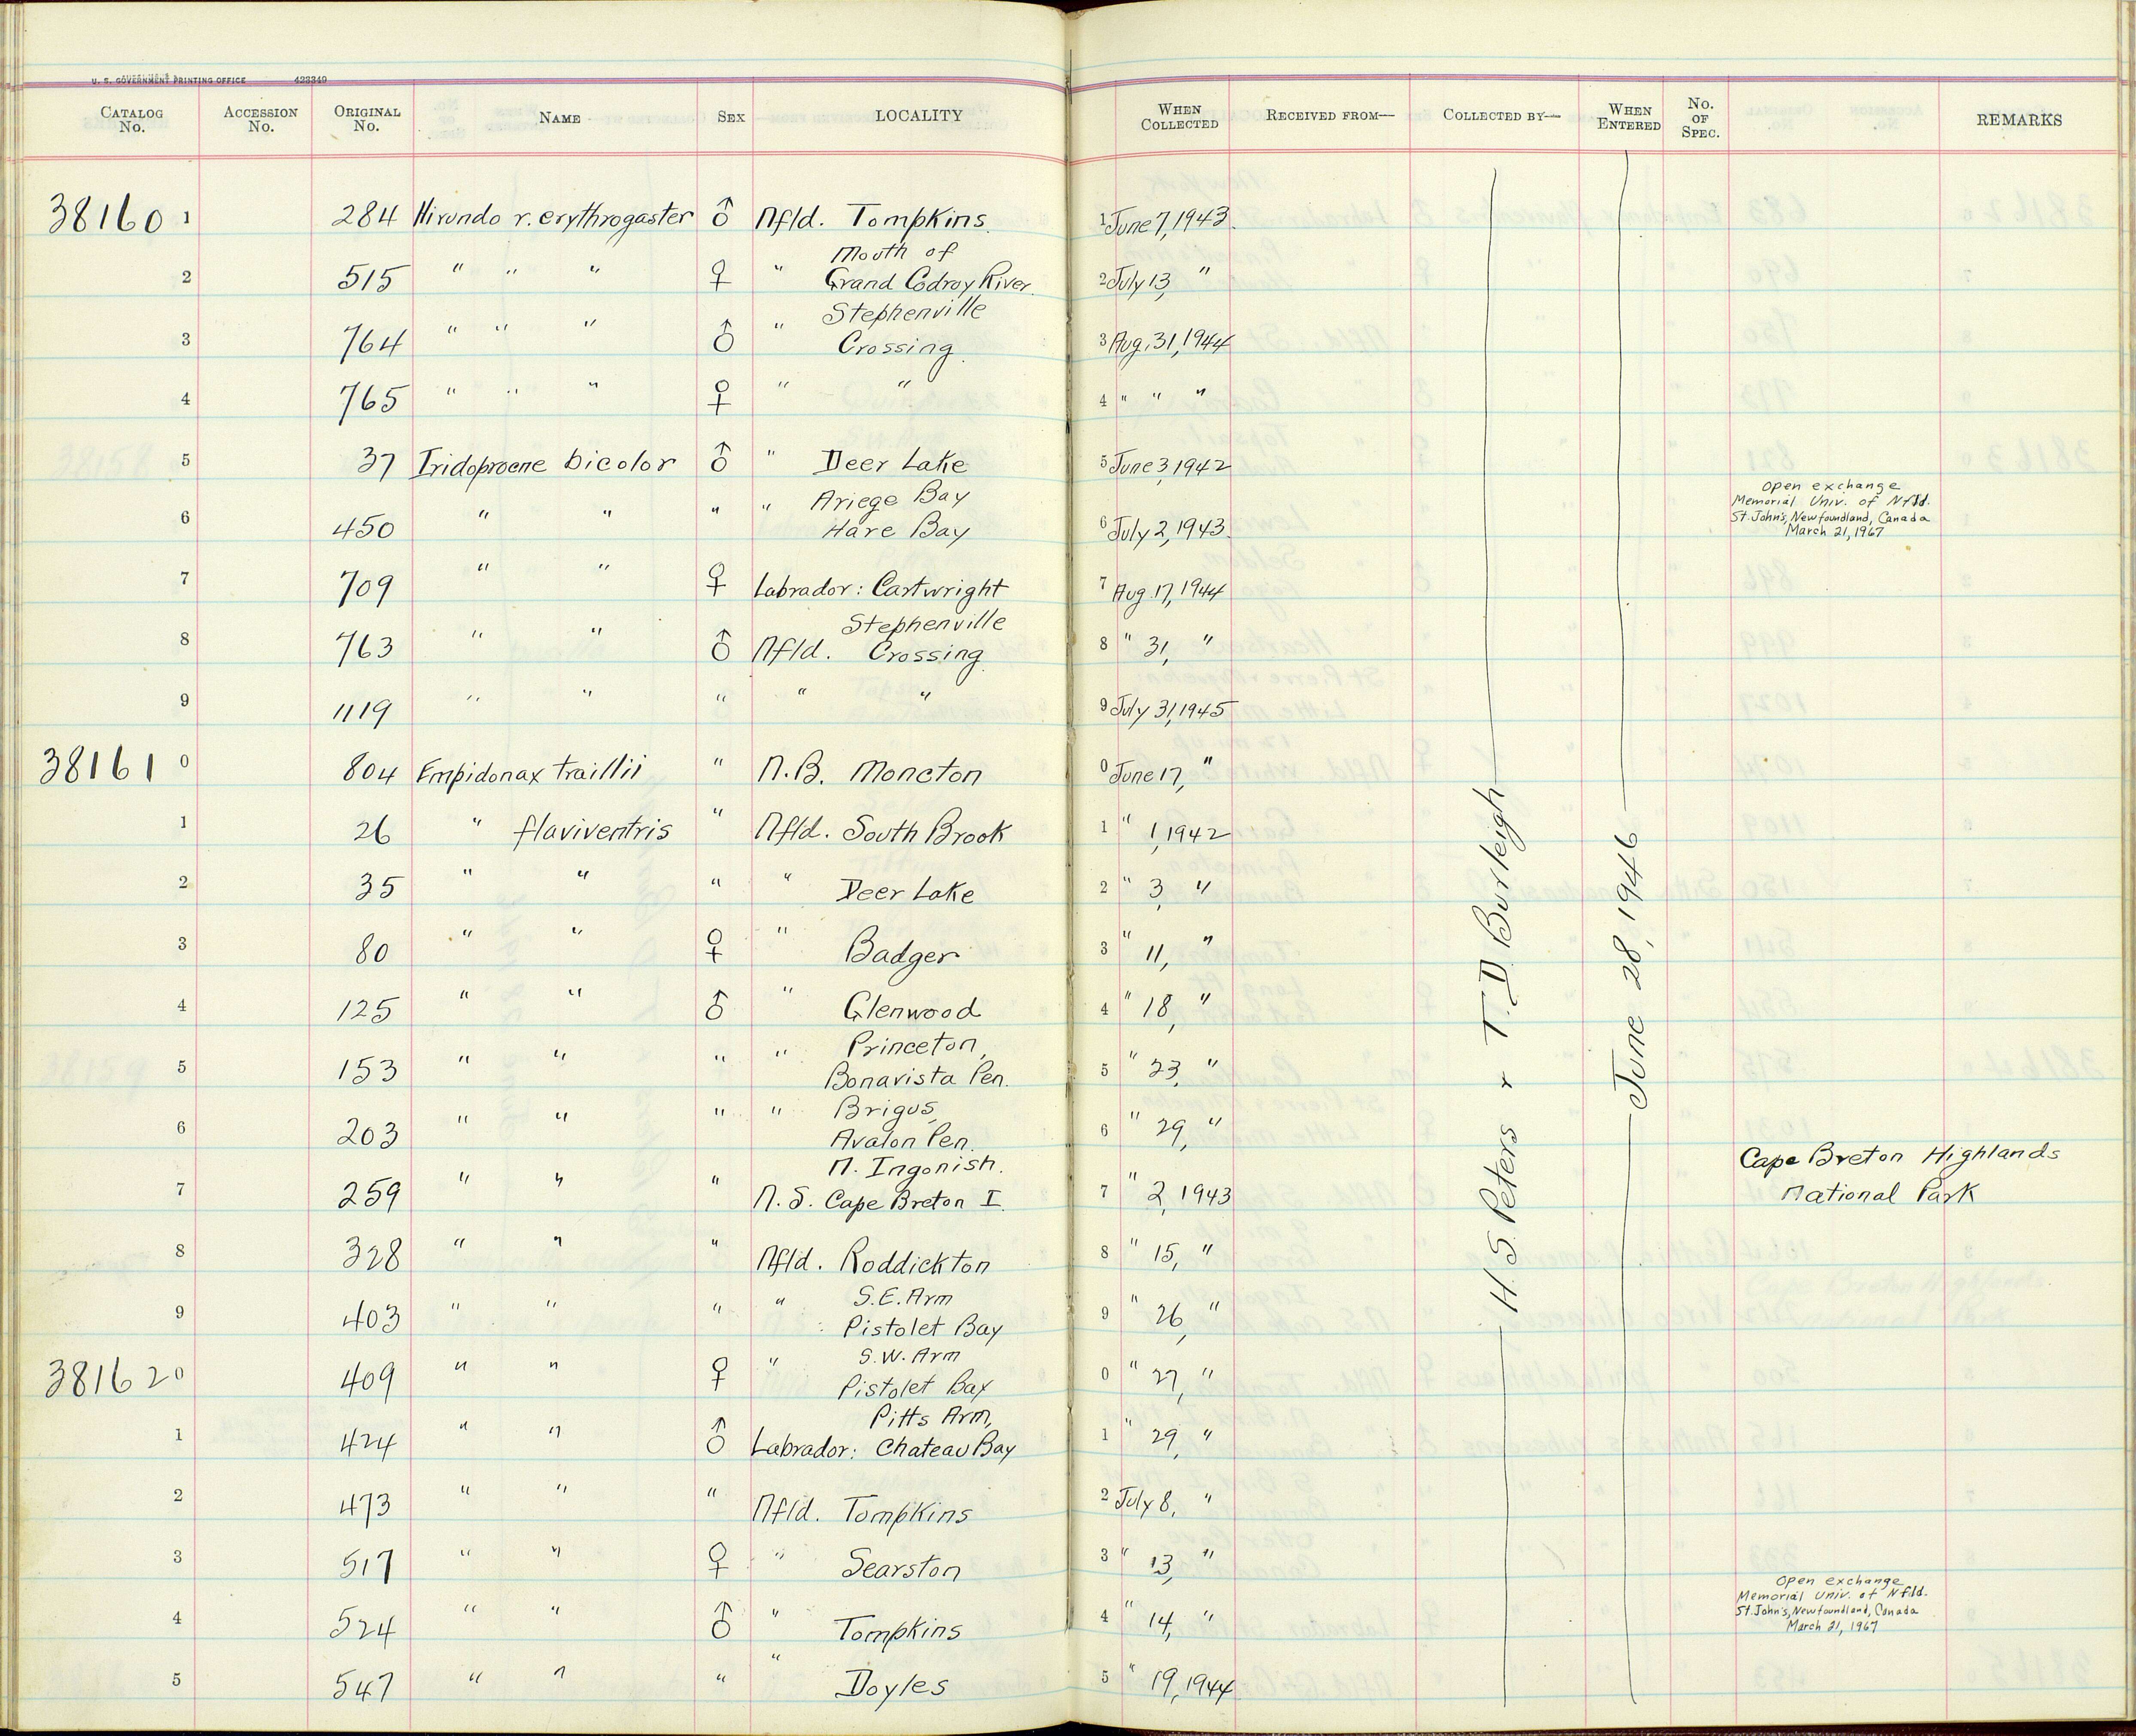 U. S. GOVERNMENT PRINTING OFFICE 423349
CATALOG No. ACCESSION No. ORIGINAL No. NAME SEX LOCALITY WHEN COLLECTED RECEIVED FROM— COLLECTED BY— WHEN ENTERED No. OF SPEC. REMARKS
38160 1 284 Hirundo r. erythrogaster ♂ Nfld. Tompkins. 1 June 7, 1943.
Mouth of
2 515 " " " ♀ " Grand Codroy River. 2 July 13, "
Stephenville
3 764 " " " ♂ " Crossing. 3 Aug. 31, 1944
4 765 " " " ♀ " " 4 " " "
5 37 Iridoprocne bicolor ♂ " Deer Lake 5 June 3, 1942
6 450 " " " " Ariege Bay 6 July 2, 1943. Open exchange
Hare Bay Memorial Univ. of Nfld.
St. John's, Newfoundland, Canada
March 21, 1967
7 709 " " ♀ Labrador: Cartwright 7 Aug. 17, 1944
Stephenville
8 763 " " ♂ Nfld. Crossing 8 " 31, "
9 1119 " " " " " 9 July 31, 1945
38161 0 804 Empidonax traillii " N.B. Moncton 0 June 17, "
1 26 " flaviventris " Nfld. South Brook 1 " 1, 1942
2 35 " " " " Deer Lake 2 " 3, "
3 80 " " ♀ " Badger 3 " 11, "
4 125 " " ♂ " Glenwood 4 " 18, "
Princeton,
5 153 " " " " Bonavista Pen. 5 " 23, "
Brigus,
6 203 " " " " Avalon Pen. 6 " 29, "
N. Ingonish. Cape Breton Highlands
7 259 " " " N. S. Cape Breton I. 7 " 2, 1943 National Park
8 328 " " " Nfld. Roddickton 8 " 15, "
S.E. Arm
9 403 " " " " Pistolet Bay 9 " 26, "
S.W. Arm
38162 0 409 " " ♀ " Pistolet Bay 0 " 27, "
Pitts Arm,
1 424 " " ♂ Labrador: Chateau Bay 1 " 29, "
2 473 " " " Nfld. Tompkins 2 July 8, "
3 517 " " ♀ " Searston 3 " 13, "
4 524 " " ♂ " Tompkins 4 " 14, " Open exchange
Memorial Univ. of Nfld.
St. John's, Newfoundland, Canada
March 21, 1967
5 547 " " " " Doyles 5 " 19, 1944
H. S. Peters & T. D. Burleigh
June 28, 1946